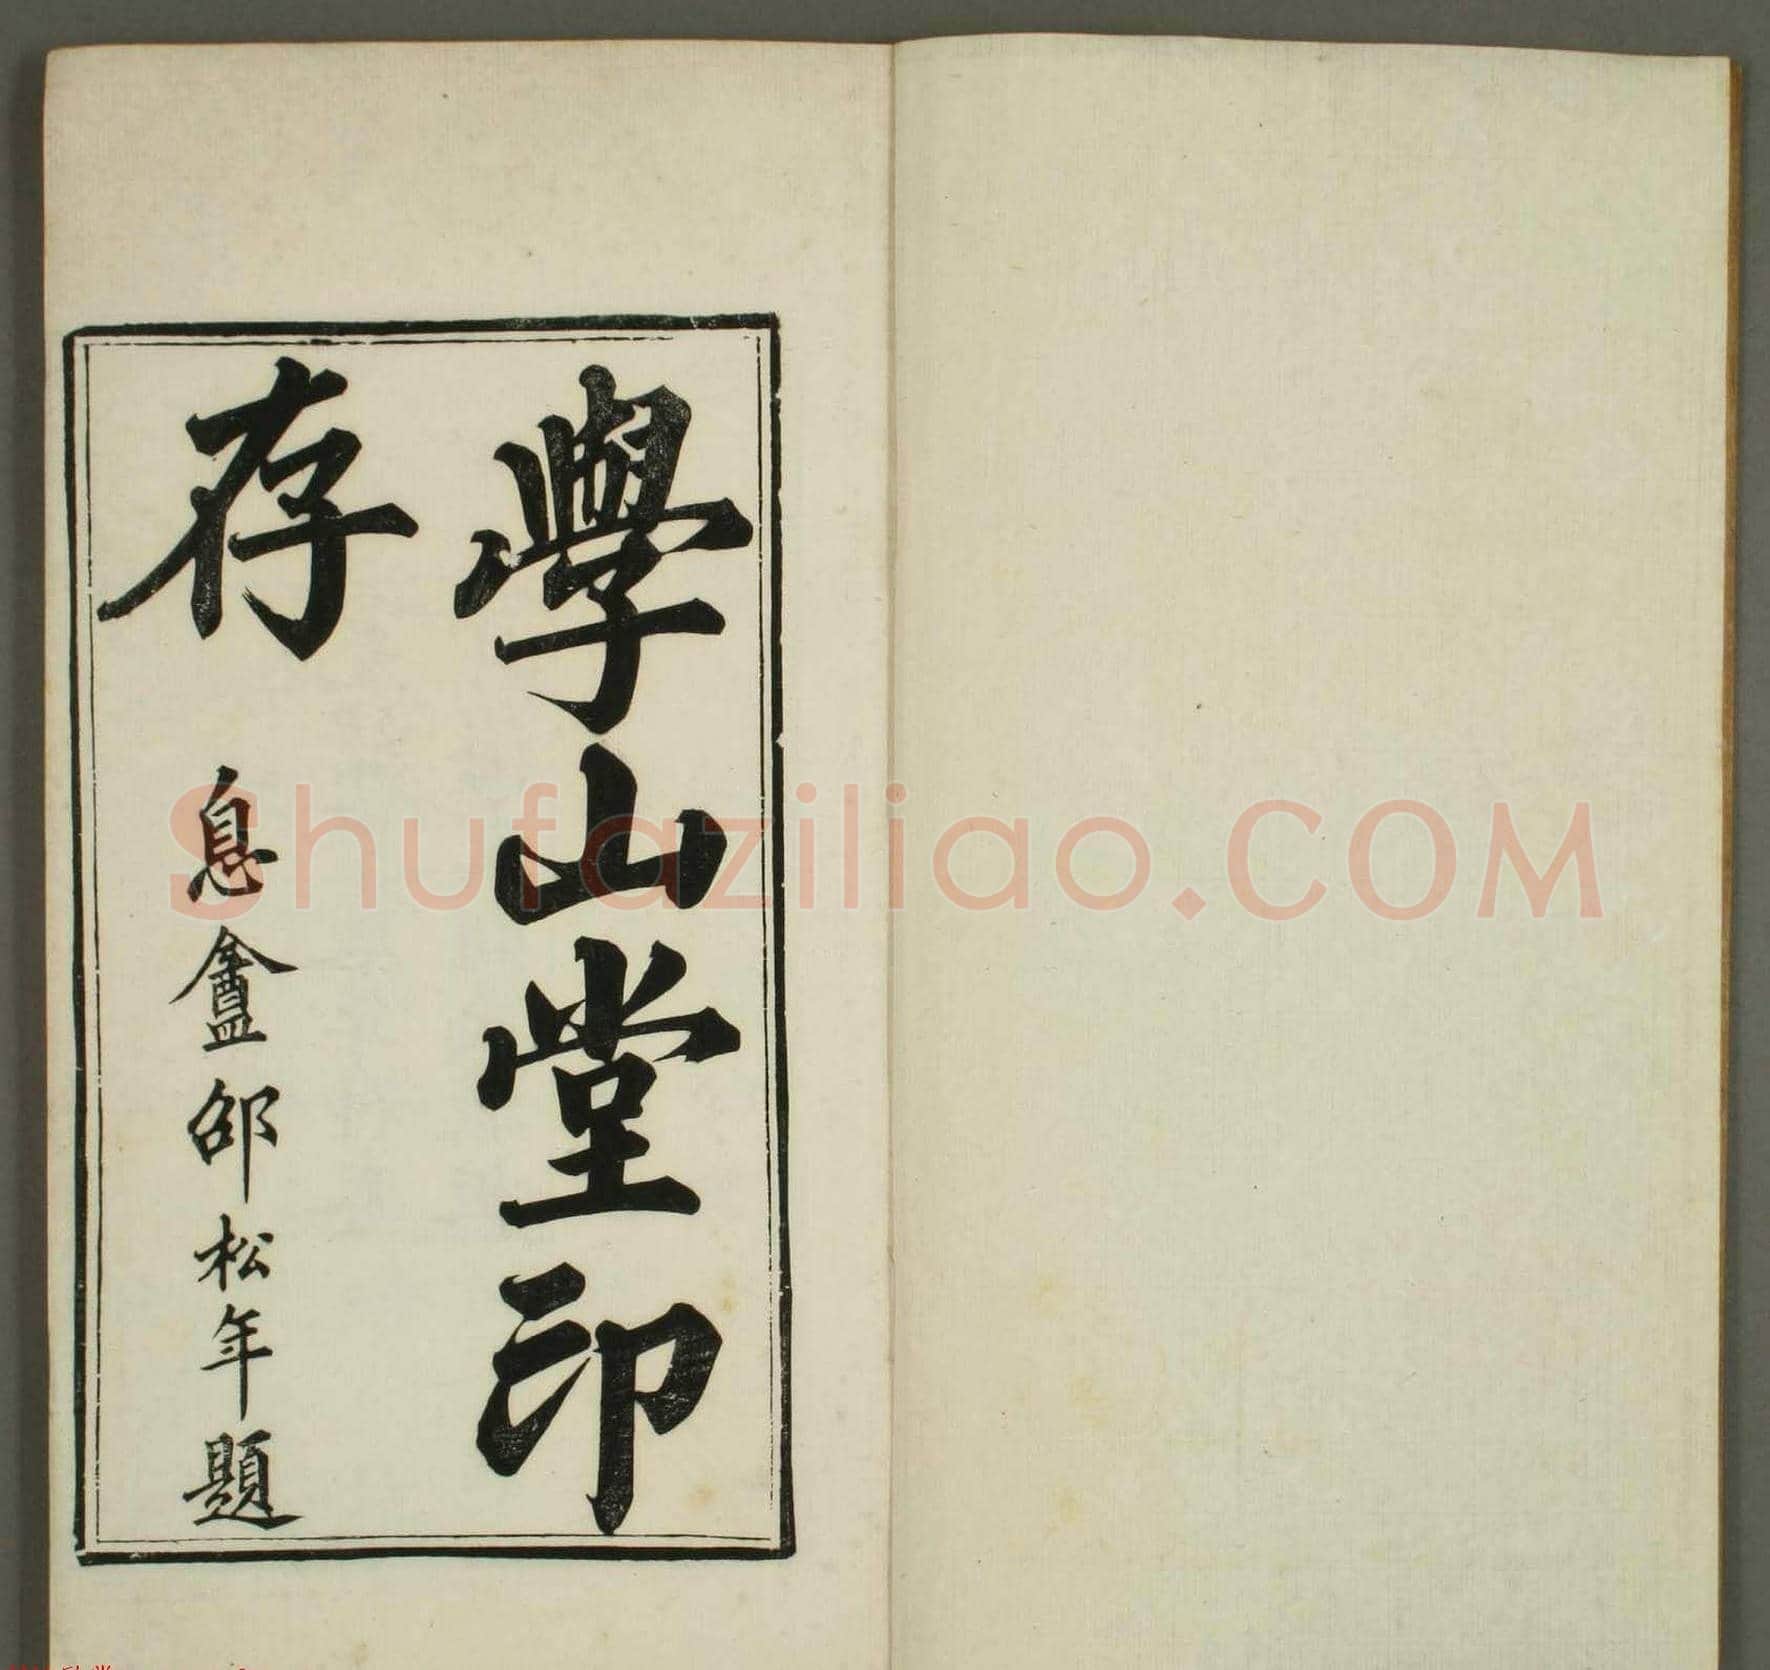 學山堂印
存
息盦邵松年題
Shufaziliao.COM